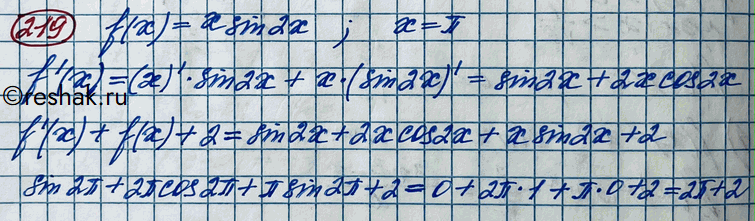 219 f(x) = x sin2x ; x = π
f'(x) = (x)'·sin2x + x·(sin2x)' = sin2x + 2x cos2x
©reshak.ru
f'(x) + f(x) + 2 = sin2x + 2x cos2x + x sin2x + 2
sin2π + 2π cos2π + π sin2π + 2 = 0 + 2π·1 + π·0 + 2 = 2π + 2